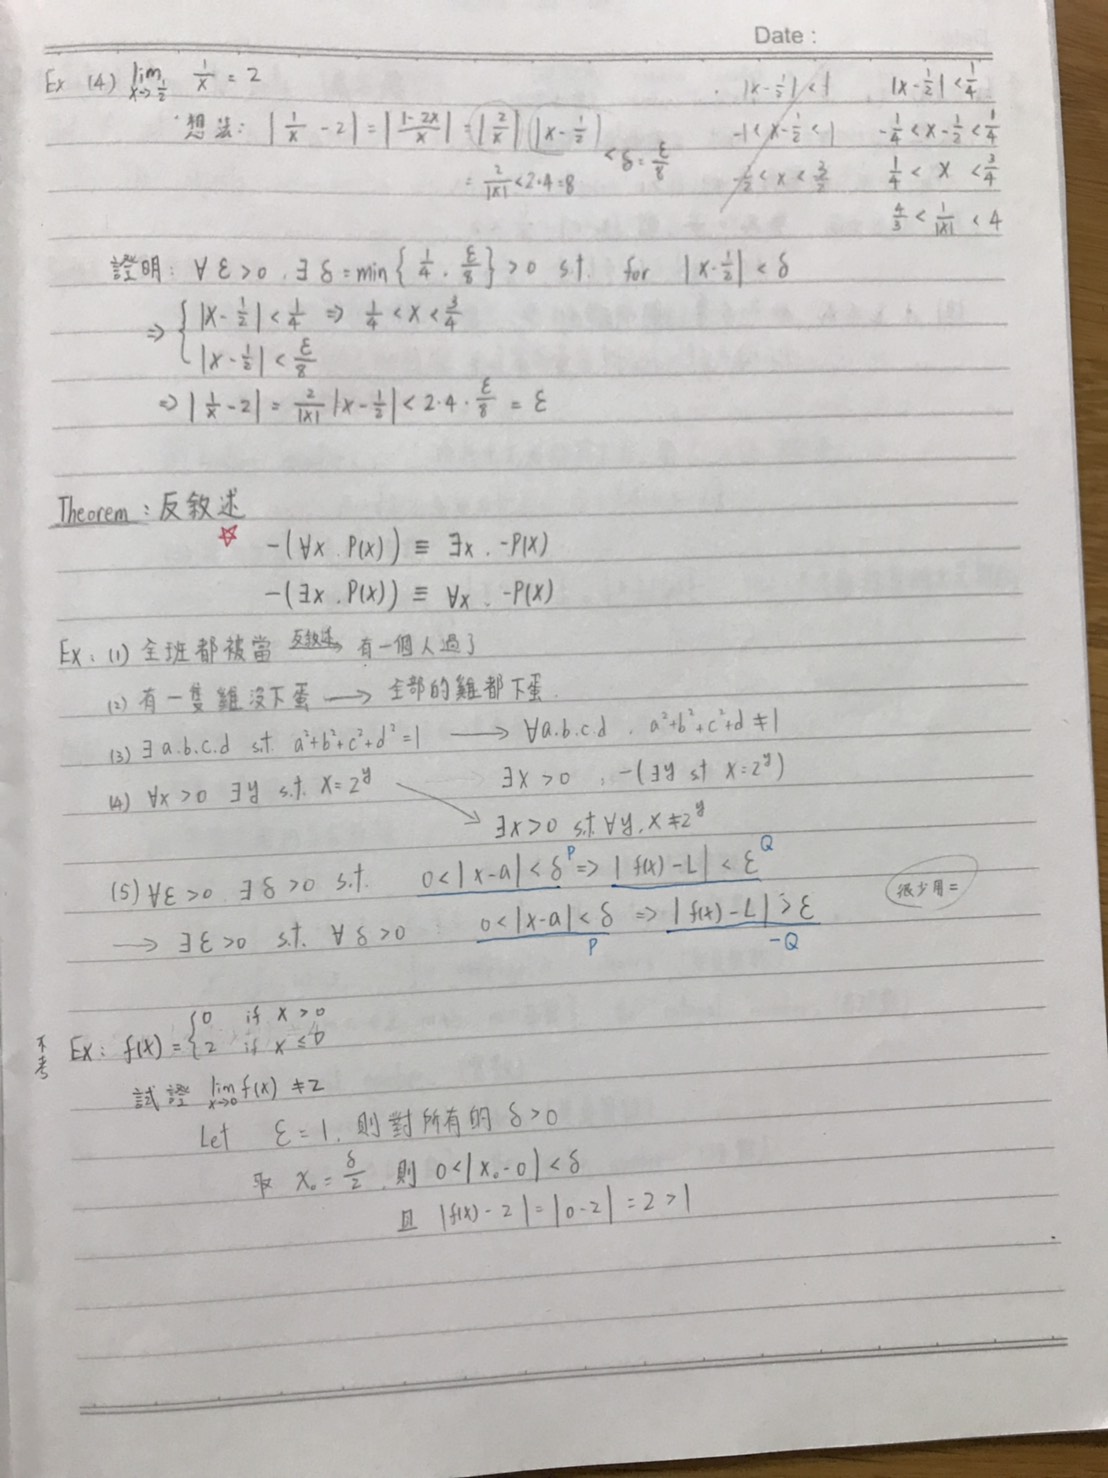 Date :
Ex (4) lim x→1/2 1/x = 2
想法: |1/x - 2| = |(1-2x)/x| = |2/x| |x - 1/2| < δ = ε/8
= 2/|x| < 2·4 = 8
|x - 1/2| < 1
-1 < x - 1/2 < 1
-1/2 < x < 3/2
|x - 1/2| < 1/4
-1/4 < x - 1/2 < 1/4
1/4 < x < 3/4
4/3 < 1/|x| < 4
證明: ∀ ε > 0 . ∃ δ = min{ 1/4 . ε/8 } > 0 s.t. for |x - 1/2| < δ
⇒ { |x - 1/2| < 1/4 ⇒ 1/4 < x < 3/4
|x - 1/2| < ε/8
⇒ |1/x - 2| = 2/|x| |x - 1/2| < 2·4·ε/8 = ε
Theorem : 反敘述
☆ -(∀x . P(x)) ≡ ∃x . -P(x)
-(∃x . P(x)) ≡ ∀x . -P(x)
Ex: (1) 全班都被當 反敘述→ 有一個人過了
(2) 有一隻雞沒下蛋 → 全部的雞都下蛋.
(3) ∃ a.b.c.d s.t. a²+b²+c²+d²=1 → ∀a.b.c.d . a²+b²+c²+d ≠ 1
(4) ∀x > 0 ∃y s.t. x = 2^y ∃x > 0 . -(∃y st x = 2^y)
→ ∃x > 0 s.t. ∀y. x ≠ 2^y
(5) ∀ε > 0 . ∃ δ > 0 s.t. 0 < |x - a| < δ P ⇒ |f(x) - L| < ε Q
→ ∃ ε > 0 s.t. ∀ δ > 0 0 < |x-a| < δ ⇒ |f(x) - L| ≥ ε
P -Q
很少用=
不考
Ex: f(x) = { 0 if x > 0
2 if x ≤ 0
試證 lim x→0 f(x) ≠ 2
Let ε = 1 . 則對所有的 δ > 0
取 x₀ = δ/2 . 則 0 < |x₀ - 0| < δ
且 |f(x) - 2| = |0 - 2| = 2 > 1